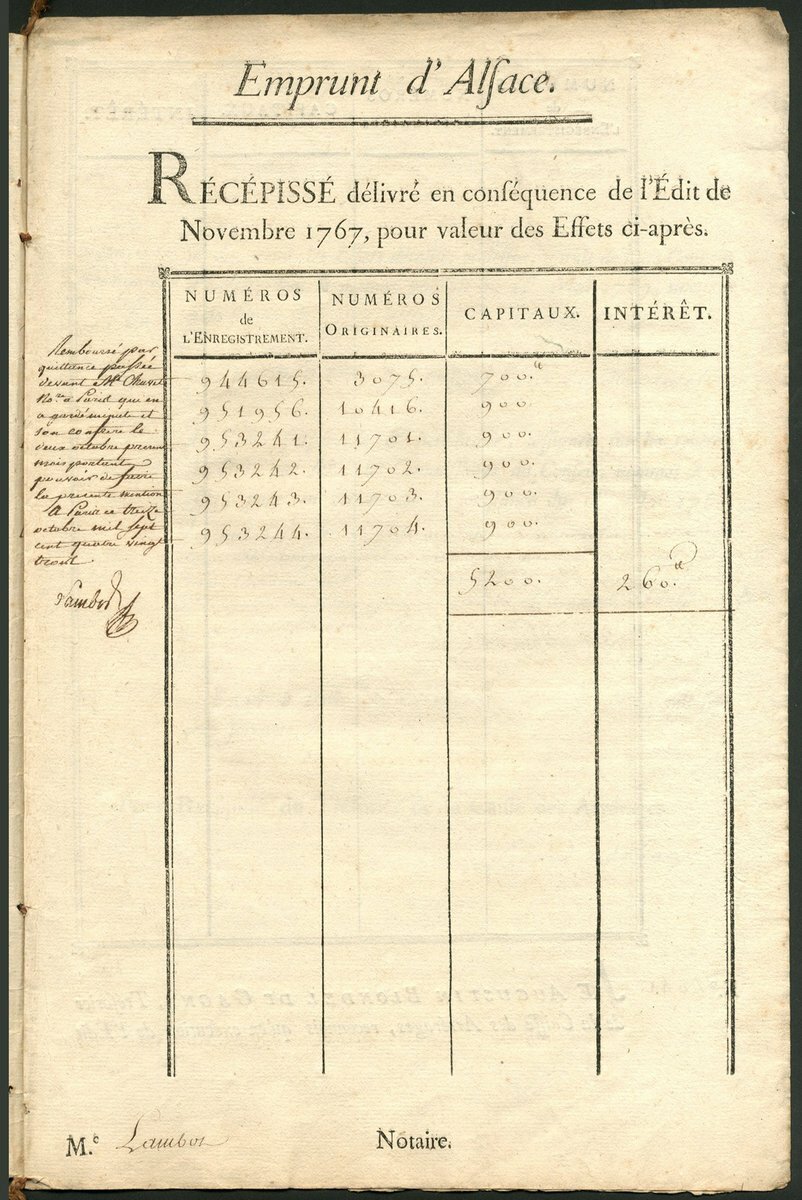 Emprunt d'Alſace.
RÉCÉPISSÉ délivré en conſéquence de l'Édit de
Novembre 1767, pour valeur des Effets ci-après.
NUMÉROS de L'ENREGISTREMENT. NUMÉROS ORIGINAIRES. CAPITAUX. INTÉRÊT.
944615. 3075. 700.
951956. 10416. 900
953241. 11701. 900.
953242. 11702. 900.
953243. 11703. 900.
953244. 11704. 900.
5200. 260.
Remboursé par
quittance passée
devant Me
Nore à Paris qui en
a gardé minute et
son confrere le
deux octobre present
mois portant
pouvoir de faire
la presente mention
A Paris ce treize
octobre mil sept
cent quatre vingt
trois.
Lambot
M.e Lambot Notaire.